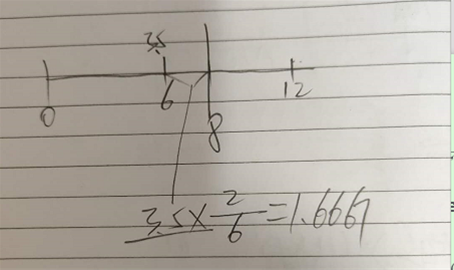 3.5
0 6 8 12
3.5 × 2/6 = 1.6667